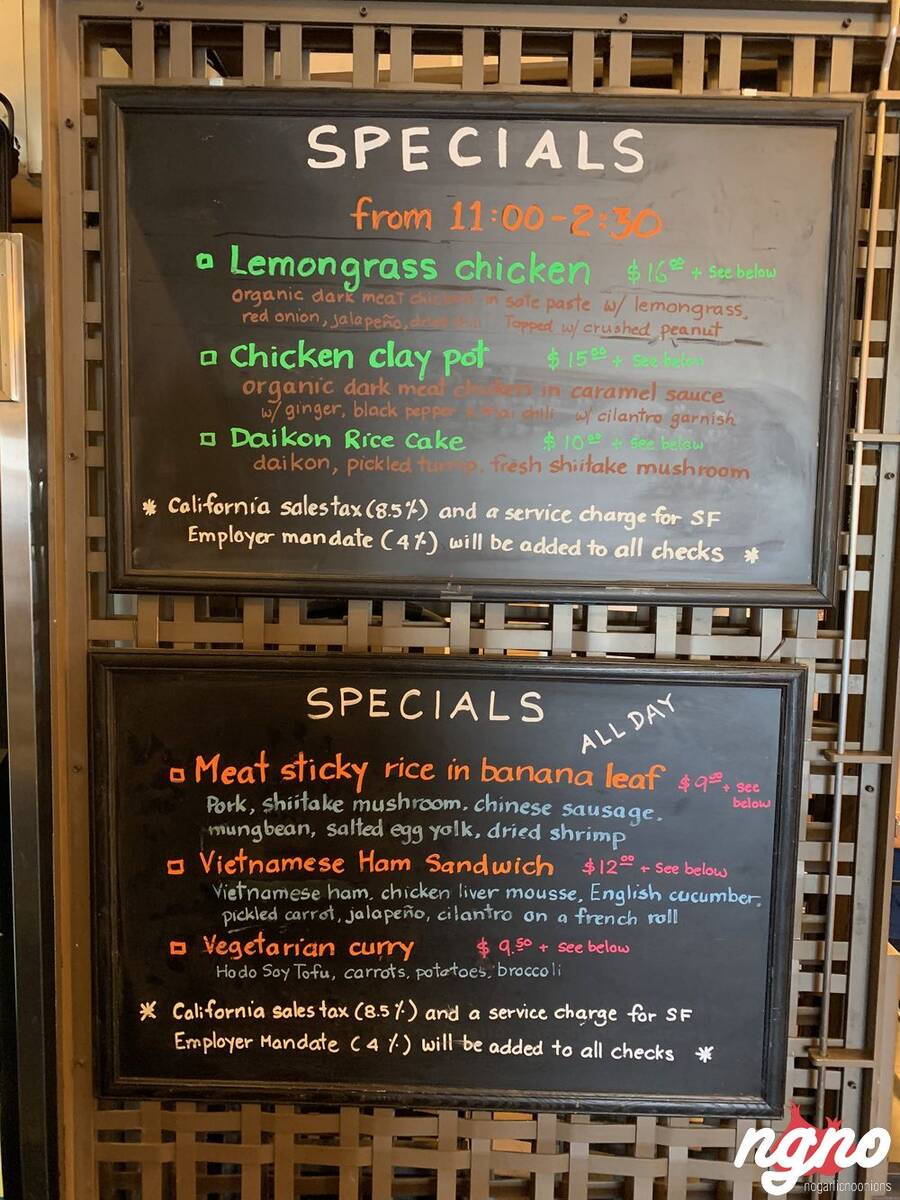 SPECIALS
from 11:00-2:30
Lemongrass chicken $16.00 + See below
organic dark meat chicken in sate paste w/ lemongrass,
red onion, jalapeño, dried chili Topped w/ crushed peanut
Chicken clay pot $15.00 + See below
organic dark meat chicken in caramel sauce
w/ ginger, black pepper & thai chili w/ cilantro garnish
Daikon Rice Cake $10.00 + See below
daikon, pickled turnip, fresh shiitake mushroom
* California sales tax (8.5%) and a service charge for SF
Employer mandate (4%) will be added to all checks *
SPECIALS
ALL DAY
Meat sticky rice in banana leaf $9.00 + see
below
Pork, shiitake mushroom, chinese sausage,
mungbean, salted egg yolk, dried shrimp
Vietnamese Ham Sandwich $12.00 + See below
Vietnamese ham, chicken liver mousse, English cucumber,
pickled carrot, jalapeño, cilantro on a french roll
Vegetarian curry $9.50 + see below
Hodo Soy Tofu, carrots, potatoes, broccoli
* California sales tax (8.5%) and a service charge for SF
Employer Mandate (4%) will be added to all checks *
ngno
nogarlicnoonions